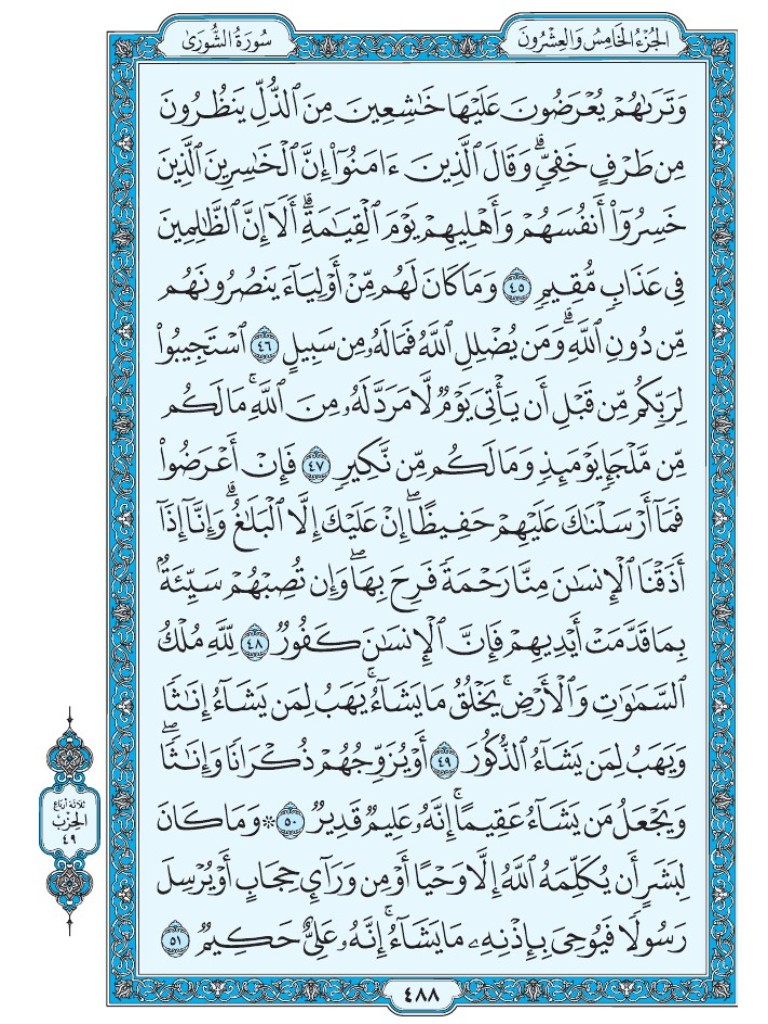 الجُزْءُ الخَامِسُ وَالعِشْرُونَ
سُورَةُ الشُّورَىٰ
وَتَرَىٰهُمْ يُعْرَضُونَ عَلَيْهَا خَٰشِعِينَ مِنَ ٱلذُّلِّ يَنظُرُونَ
مِن طَرْفٍ خَفِىٍّۗ وَقَالَ ٱلَّذِينَ ءَامَنُوٓا۟ إِنَّ ٱلْخَٰسِرِينَ ٱلَّذِينَ
خَسِرُوٓا۟ أَنفُسَهُمْ وَأَهْلِيهِمْ يَوْمَ ٱلْقِيَٰمَةِۗ أَلَآ إِنَّ ٱلظَّٰلِمِينَ
فِى عَذَابٍ مُّقِيمٍ ٤٥ وَمَا كَانَ لَهُم مِّنْ أَوْلِيَآءَ يَنصُرُونَهُم
مِّن دُونِ ٱللَّهِۗ وَمَن يُضْلِلِ ٱللَّهُ فَمَا لَهُۥ مِن سَبِيلٍ ٤٦ ٱسْتَجِيبُوا۟
لِرَبِّكُم مِّن قَبْلِ أَن يَأْتِىَ يَوْمٌ لَّا مَرَدَّ لَهُۥ مِنَ ٱللَّهِۚ مَا لَكُم
مِّن مَّلْجَإٍ يَوْمَئِذٍ وَمَا لَكُم مِّن نَّكِيرٍ ٤٧ فَإِنْ أَعْرَضُوا۟
فَمَآ أَرْسَلْنَٰكَ عَلَيْهِمْ حَفِيظًاۖ إِنْ عَلَيْكَ إِلَّا ٱلْبَلَٰغُۗ وَإِنَّآ إِذَآ
أَذَقْنَا ٱلْإِنسَٰنَ مِنَّا رَحْمَةً فَرِحَ بِهَاۖ وَإِن تُصِبْهُمْ سَيِّئَةٌۢ
بِمَا قَدَّمَتْ أَيْدِيهِمْ فَإِنَّ ٱلْإِنسَٰنَ كَفُورٌ ٤٨ لِّلَّهِ مُلْكُ
ٱلسَّمَٰوَٰتِ وَٱلْأَرْضِۚ يَخْلُقُ مَا يَشَآءُۚ يَهَبُ لِمَن يَشَآءُ إِنَٰثًا
وَيَهَبُ لِمَن يَشَآءُ ٱلذُّكُورَ ٤٩ أَوْ يُزَوِّجُهُمْ ذُكْرَانًا وَإِنَٰثًاۖ
وَيَجْعَلُ مَن يَشَآءُ عَقِيمًاۚ إِنَّهُۥ عَلِيمٌ قَدِيرٌ ٥٠ ۞ وَمَا كَانَ
لِبَشَرٍ أَن يُكَلِّمَهُ ٱللَّهُ إِلَّا وَحْيًا أَوْ مِن وَرَآئِ حِجَابٍ أَوْ يُرْسِلَ
رَسُولًا فَيُوحِىَ بِإِذْنِهِۦ مَا يَشَآءُۚ إِنَّهُۥ عَلِىٌّ حَكِيمٌ ٥١
ثلاثة أرباع
الحِزْب
٤٩
٤٨٨